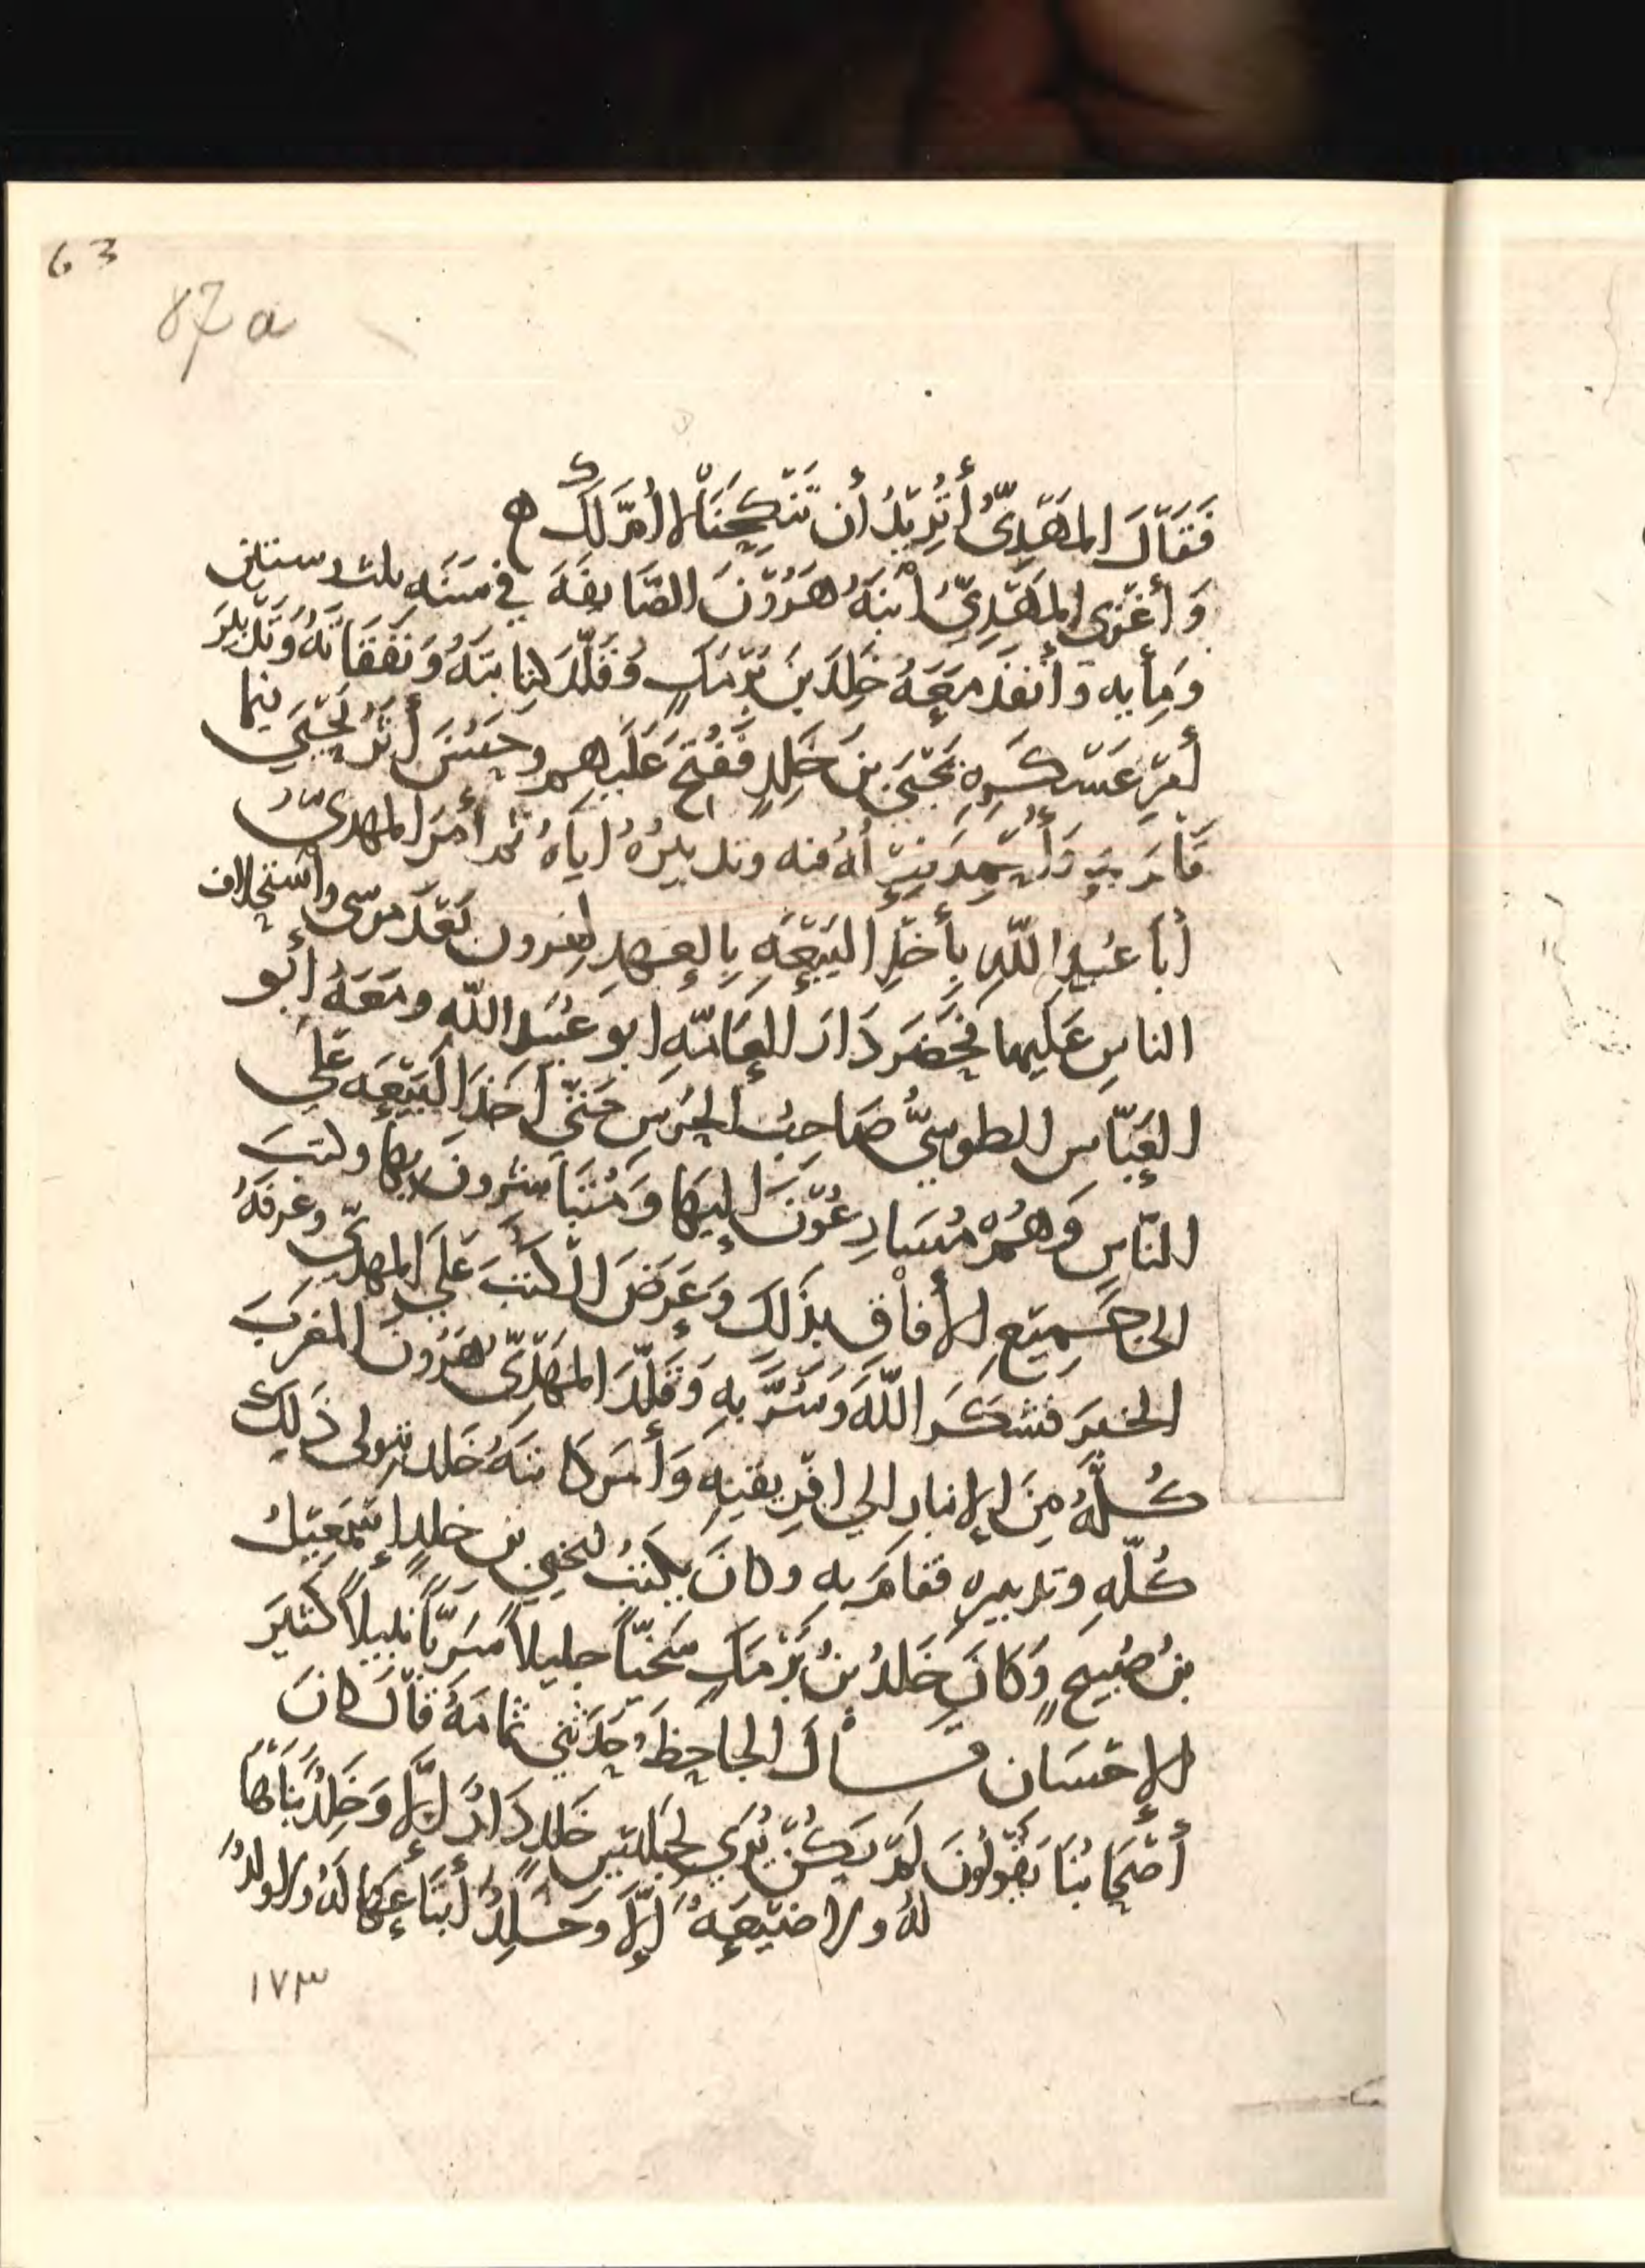 63
87a
فَقَالَ المَهْدِيُّ أَتُرِيْدُ أَن تَنْكِحَنَا لا أُمَّ لَكَ ه
وَأَغْزَى المَهْدِيُّ ابْنَهُ هَرُوْنَ الصَّايفَة في سَنَه ثلث وستين
وَمِأيه وَأَنفَذَ مَعَهُ خَلِدَ بنَ بَرْمَكٍ وَقَلَّدَ كِتَابَتَهُ وَنَفَقَاتَهُ وَتَدْبِيْرَ
أمْرِ عَسْكَرِهِ يَحْيَى بنَ خَلِدٍ فَفُتِحَ عَلَيهم وحَسُنَ أَثَرُ يَحْيَى فيما
قَامَ بِهِ وَأُحمِدَ بِرّ لهُ منه وتدبيرُهُ إيَّاهُ ثم أَمَرَ المهديُّ
أَبا عُبيدِ اللّهِ بِأَخْذِ البَيْعَةِ بِالعَهدِ لهرون بَعْدَ مُوسى واستحلاف
الناسِ عَلَيهما فحَضَرَ دَارَ العَامَّةِ ابو عُبَيد اللّه ومَعَهُ أبو
العَبّاسِ الطوسِيُّ صَاحِبُ الحَرَسِ حَتَّى أَخَذَ البَيْعَه عَلَى
النّاسِ وَهُمْ مُسَارِعُوْنَ إليهَا وَمُتَبَاشرونَ بِهَا وكتبَ
الى جَمِيْعِ الأفاقِ بذَلِكَ وَعَرَضَ الكتبَ عَلَى المهديّ وعرفَهُ
الخبرَ فشكَرَ اللّهَ وَسُرَّ بِهِ وَقَلَّدَ المَهْدِيُّ هَرُونَ المغرِبَ
كُلَّهُ مِنَ الانبارِ الي افْرِيقيَهِ وَأَمَرَ كَاتبَهُ خَلد بتولى ذَلِكَ
كُلّهِ وتدبيرهِ فقَامَ بِهِ وكانَ يكتبُ ليحيى بن خلدٍ إِسْمَعِيْلُ
بنُ صُبَيحٍ وَكَانَ خَلدُ بنُ بَرْمَكٍ سَخيّاً جليلاً سَرِيّاً نبيلاً كثيرَ
الاحْسَان قـــالَ الجاحِظُ وحَدَّثَنِي ثمامَةُ قالَ كانَ
أَصْحَابُنَا يَقُولُونَ لَمْ يَكُنْ يُرَى لجليسِ خَلدٍ دَارٌ إِلَّا وَخَلِدٌ بَنَاهَا
لهُ ولا ضَيْعَةٌ إِلَّا وَخَلِدٌ ابْتَاعَهَا لَهُ ولا ولدٌ
١٧٣